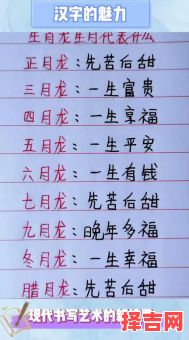 汉字的魅力
生肖龙生月代表什么
正月龙：先苦后甜
三月龙：一生富贵
四月龙：一生享福
五月龙：一生平安
六月龙：一生有钱
七月龙：先苦后甜
九月龙：晚年多福
冬月龙：一生幸福
腊月龙：先苦后甜
现代书写艺术的
择吉网